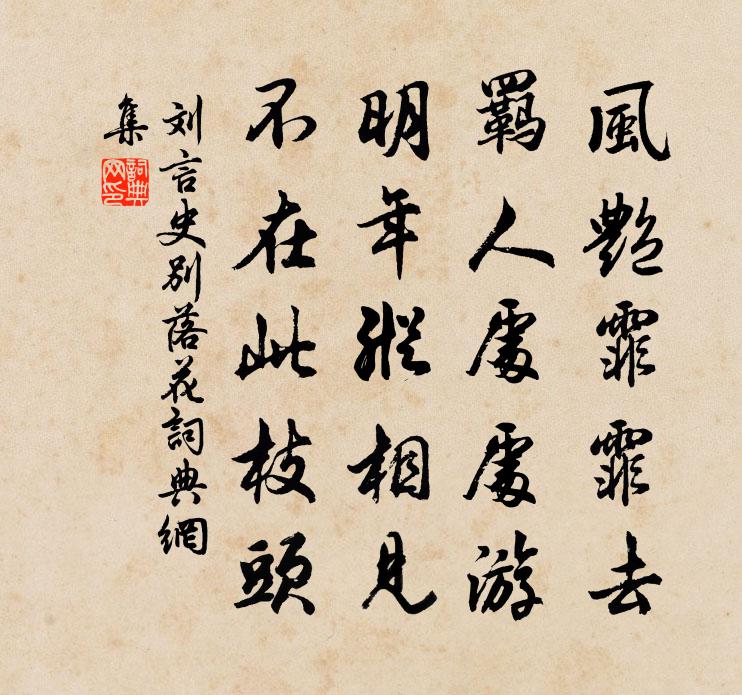 風艷霏霏去
羇人處處游
明年縱相見
不在此枝頭
刘言史別落花詞典網
集
詞典
网印